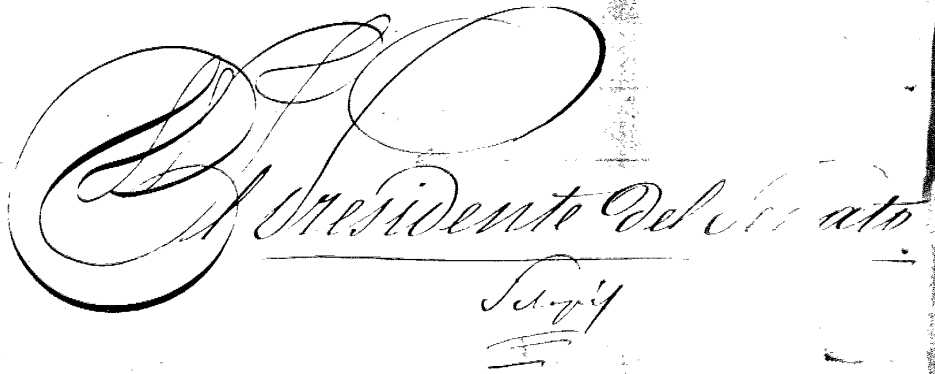 Il Presidente del Senato